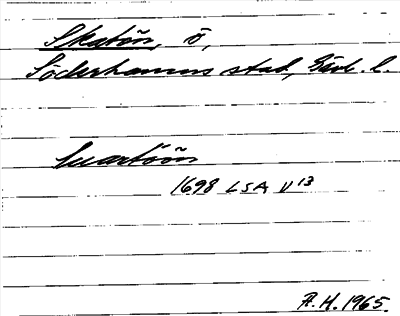 Skatön, ö,
Söderhamns stad, Gävl. l.
Svartöön
1698 LSA V 13
R.H. 1965.